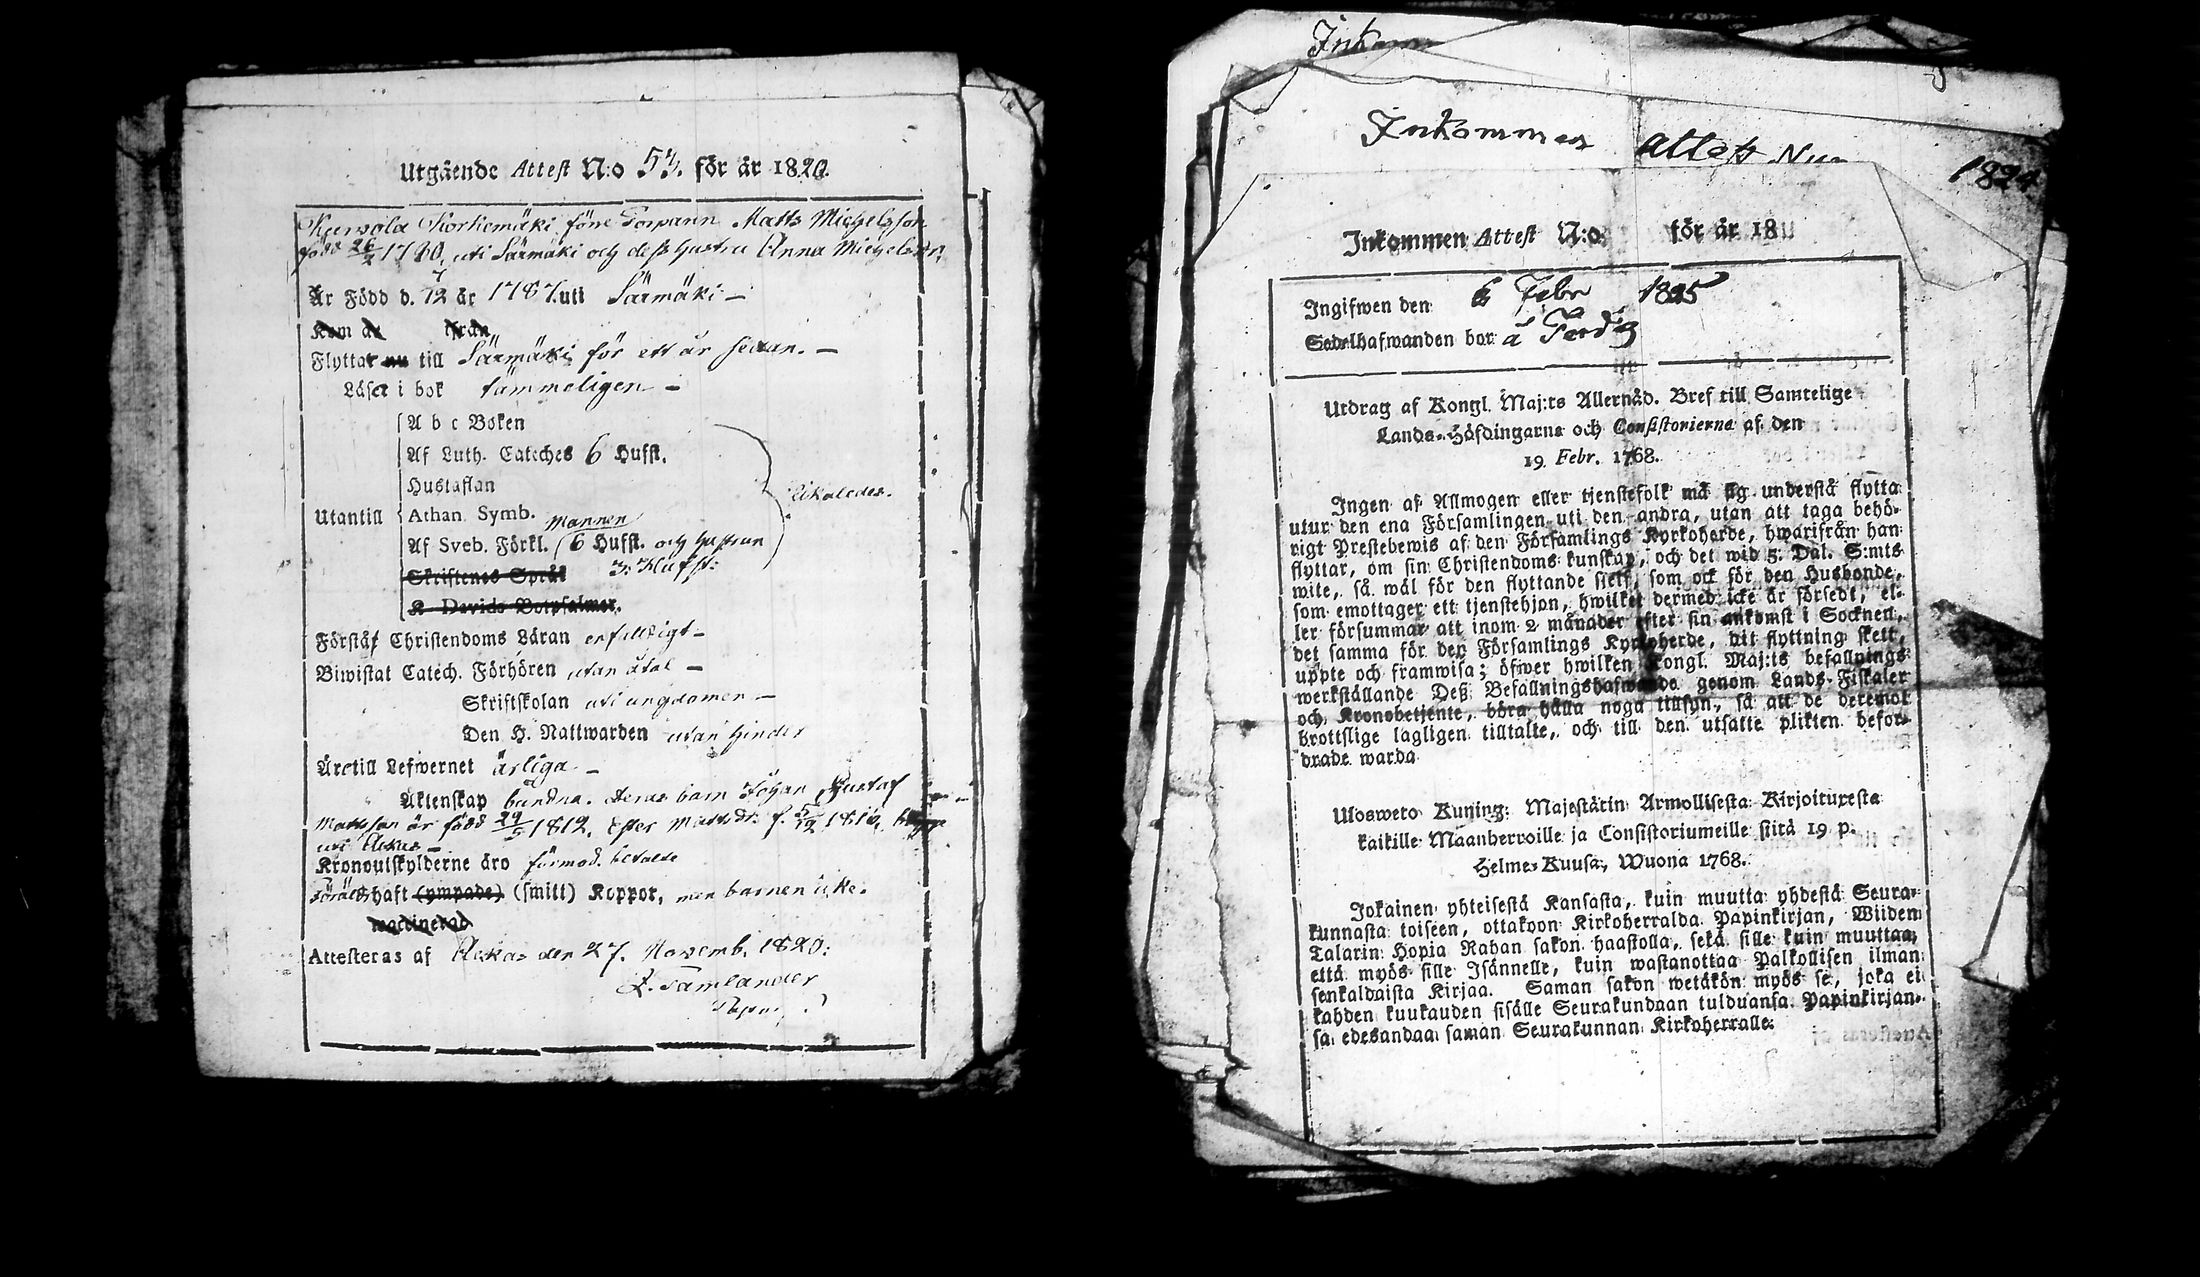 Utgående Attest N:o 53. för år 1820.
Kurvola Korkemäki, föne Torparen Matts Michelsson
född 26/2 1780, uti Särmäki och dess hustru Anna Michelsdr,
Är Född d. 12/7 år 1787. uti Särmäki –
Kom år ifrån
Flyttar nu till Särmäki för ett år sedan. –
Läser i bok tämmeligen –
A b c Boken
Af Luth. Cateches 6 Hufst.
Hustaflan
likaledes.
Utantill Athan. Symb.
mannen
Af Sveb. Förkl. 6 Hufst. och hustrun
3. Hufst:
Skriftenes Språk
K. Davids Botpsalmer.
Förstår Christendoms Läran enfaldigt –
Biwistat Catech. Förhören utan åtal –
Skriftskolan uti ungdomen –
Den H. Nattwarden utan hinder
Äro till Lefwernet ärliga –
Äktenskap bundna. Deras barn Johan Gustaf
Mattsson är född 29/5 1812. Ester Mattsdr. f. 5/12 1816,
uti Ackas –
Kronoutskylderne äro förmod. betalte
Föräldr. haft (ympade) (smitt) Koppor, men barnen icke.
waccinerad
Attesteras af Ackas den 27. Novemb. 1820:
Tamlander
Inkom
Inkommen attest
1824
Inkommen Attest N:o för år 18
Ingifwen den 6 Febr 1825
Sedelhafwanden bor å
Utdrag af Kongl. Maj:ts Allernåd. Bref till Samtelige
Lands-Höfdingarne och Consistorierne af den
19. Febr. 1768.
Ingen af Allmogen eller tjenstefolk må sig understå flytta
utur den ena Församlingen uti den andra, utan att taga behö-
rigt Prestebewis af den Församlings Kyrkoherde, hwarifrån han
flyttar, om sin Christendoms kunskap, och det wid 5. Dal. S:mts
wite, så wäl för den flyttande sjelf, som ock för den Husbonde,
som emottager ett tjenstehjon, hwilket dermed icke är försedt, el-
ler försummar att inom 2 månader efter sin ankomst i Socknen,
det samma för den Församlings Kyrkoherde, dit flyttning skett,
uppte och framwisa; öfwer hwilken Kongl. Maj:ts befallnings
werkställande Deß Befallningshafwande genom Lands-Fiskaler
och Kronobetjente, böra hålla noga tillsyn, så att de deremot
brottslige lagligen tilltalte, och till den utsatte plikten befor-
drade warda
Ulosweto Kuning: Majestätin Armollisesta Kirjoituxesta
kaikille Maanherroille ja Consistoriumeille siitä 19 p.
Helme-Kuusa, Wuona 1768.
Jokainen yhteisestä Kansasta, kuin muutta yhdestä Seura-
kunnasta toiseen, ottakoon Kirkoherralda Papinkirjan, Wiiden
Talarin Hopia Rahan sakon haastolla, sekä sille kuin muuttaa,
että myös sille Isännelle, kuin wastanottaa Palkollisen ilman
senkaldaista Kirjaa. Saman sakon wetäkön myös se, joka ei
kahden kuukauden sisälle Seurakundaan tulduansa Papinkirjan-
sa edesandaa saman Seurakunnan Kirkoherralle.